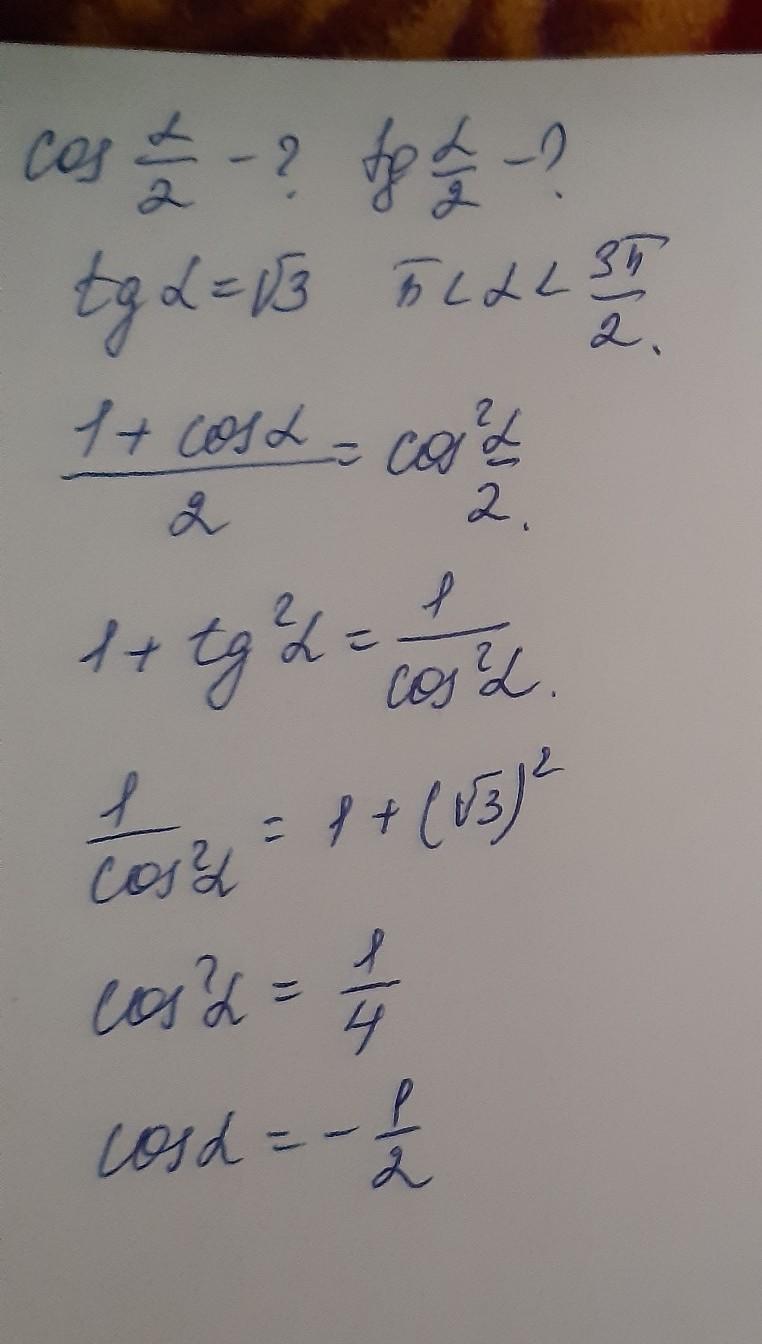 cos α/2 - ? tg α/2 - ?
tg α = √3 π < α < 3π/2.
(1 + cos α)/2 = cos² α/2.
1 + tg² α = 1/cos² α.
1/cos² α = 1 + (√3)²
cos² α = 1/4
cos α = - 1/2